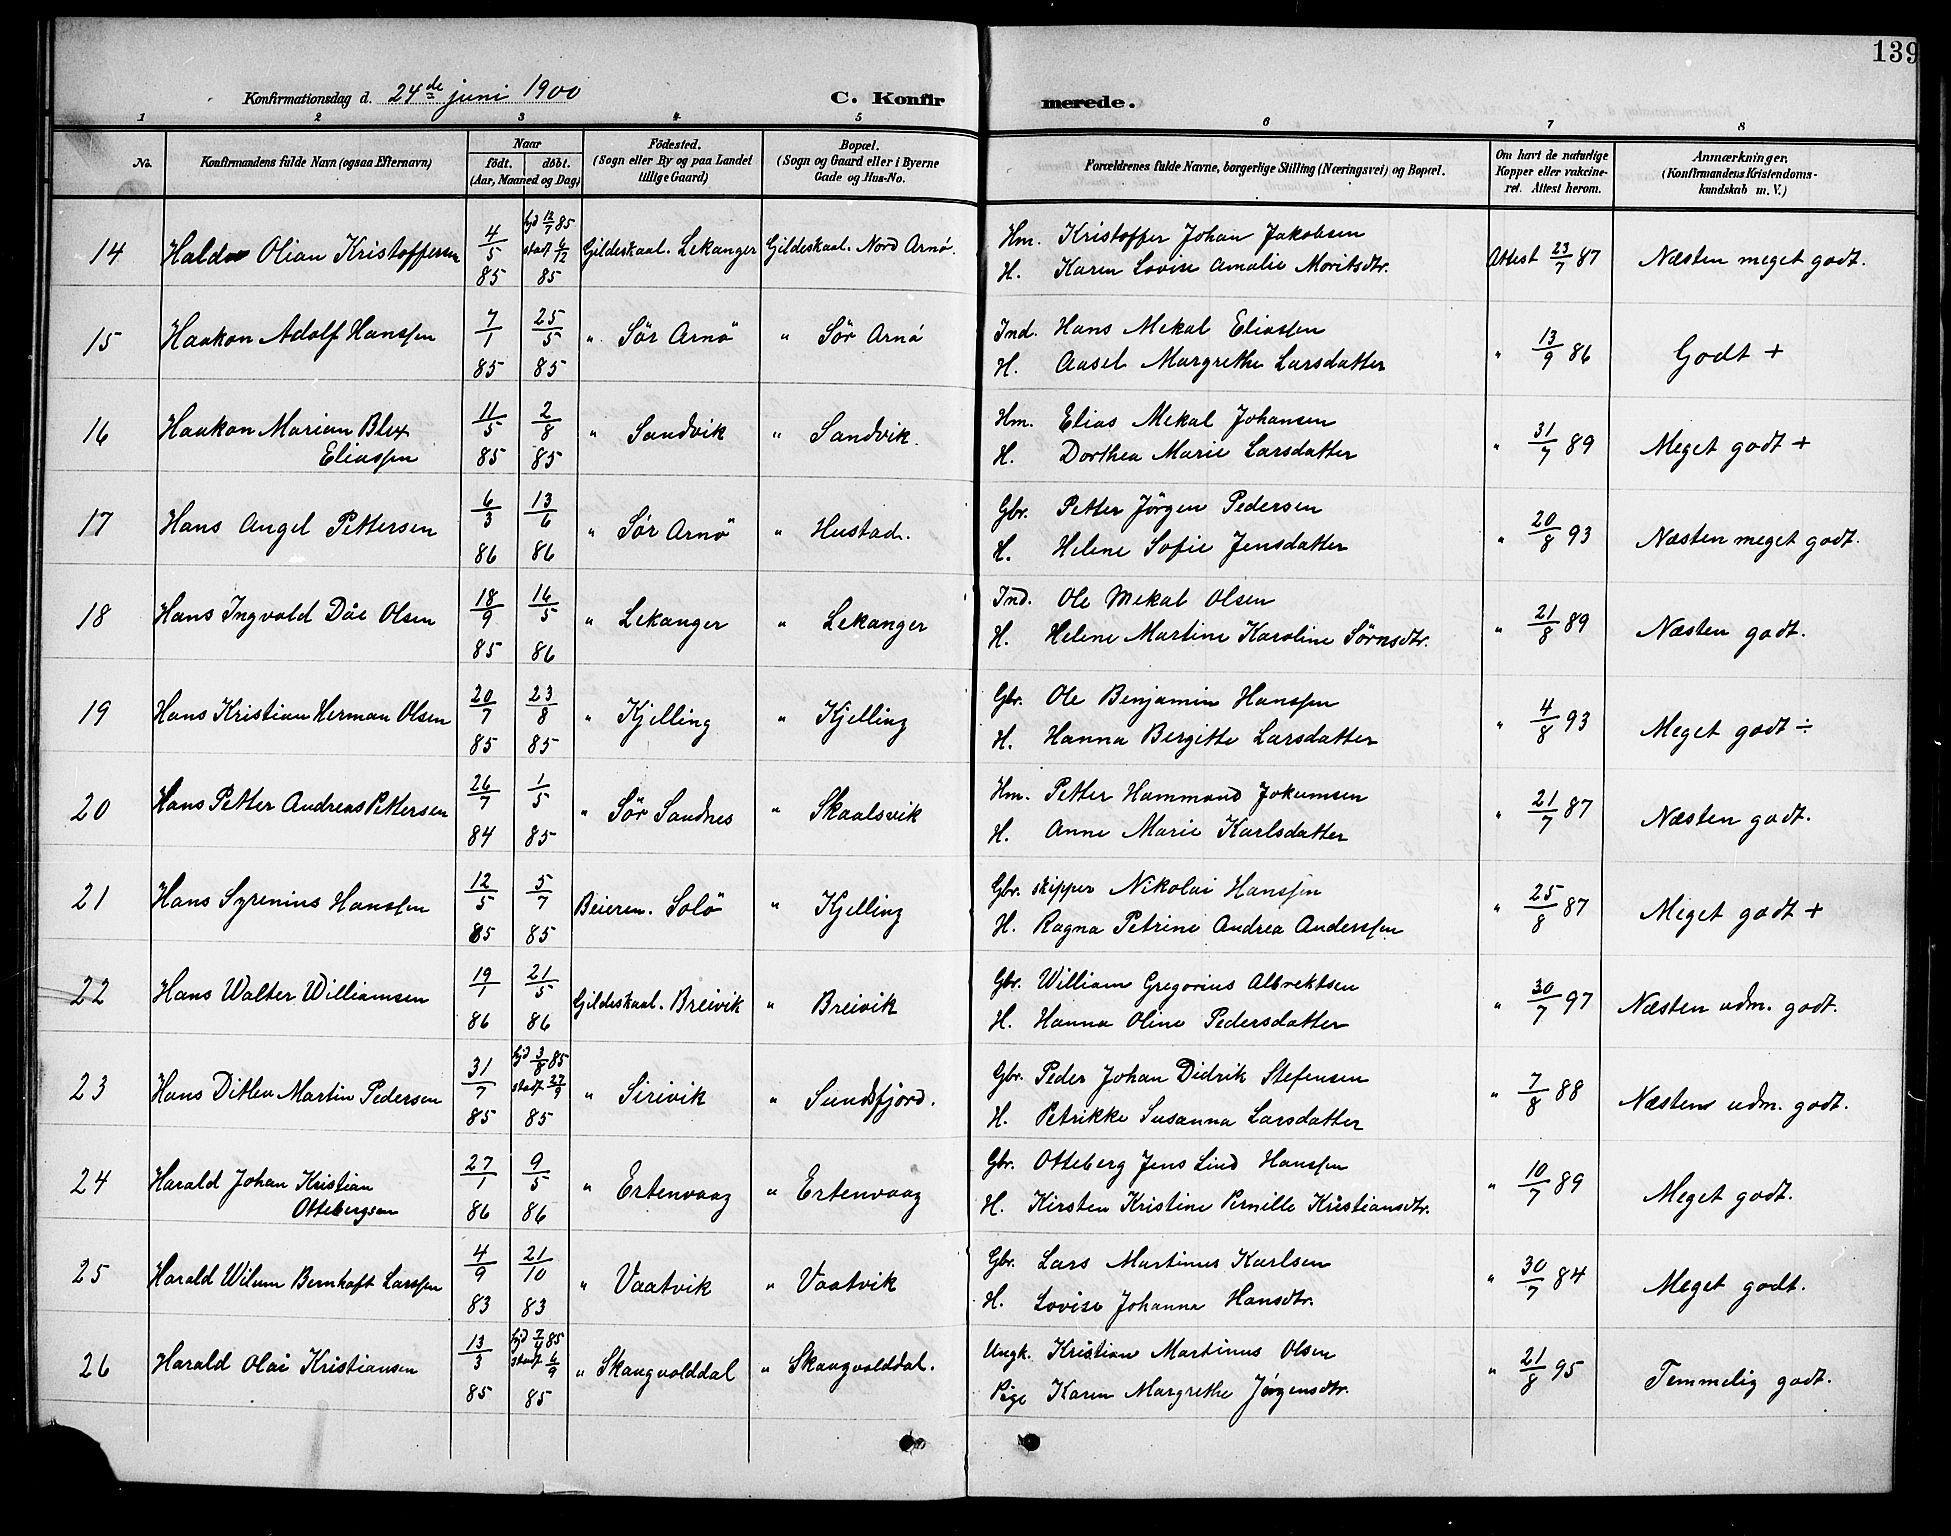 139
Konfirmationsdag d. 24de juni 1900 C. Konfirmerede.
1 2 3 4 5 6 7 8
No. Konfirmandens fulde Navn (ogsaa Efternavn) Naar født. døbt. (Aar, Maaned og Dag) Fødested. (Sogn eller By og paa Landet tillige Gaard) Bopæl. (Sogn og Gaard eller i Byerne Gade og Hus-No. Forældrenes fulde Navne, borgerlige Stilling (Næringsvei) og Bopæl. Om havt de naturlige Kopper eller vakcineret. Attest herom. Anmærkninger. (Konfirmandens Kristendomskundskab m. V.)
14 Olian Kristoffersen 4/5 85 hjd 12/7 85 stadf 6/12 85 Gildeskaal. Lekanger Gildeskaal. Nord Arnø. Hm. Kristoffer Johan Jakobsen
H. Karen Lovise Amalie Moritsdtr. Attest 23/7 87 Næsten meget godt.
15 Haakon Adolf Hanssen 7/1 85 25/5 85 " Sör Arnö " Sör Arnö Ind. Hans Mekal Eliassen
H. Aasel Margrethe Larsdatter " 13/9 86 Godt +
16 Haakon Marian Blex
Eliassen 11/5 85 2/8 85 " Sandvik " Sandvik. Hm. Elias Mekal Johansen
H. Dorthea Marie Larsdatter " 31/7 89 Meget godt +
17 Hans Angel Pettersen 6/3 86 13/6 86 " Sör Arnö " Hustad. Gbr. Petter Jörgen Pedersen
H. Helene Sofie Jensdatter " 20/8 93 Næsten meget godt.
18 Hans Ingvald Dåe Olsen 18/9 85 16/5 86 " Lekanger " Lekanger Ind. Ole Mekal Olsen
H. Helene Martine Karoline Sörnsdtr. " 21/8 89 Næsten godt.
19 Hans Kristian Herman Olsen 20/7 85 23/8 85 " Kjelling " Kjelling Gbr. Ole Benjamin Hanssen
H. Hanna Bergitte Larsdatter " 4/8 93 Meget godt ÷
20 Hans Petter Andreas Pettersen 26/7 84 1/5 85 " Sör Sandnes " Skaalsvik Hm. Petter Hammond Jokumsen
H. Anne Marie Karlsdatter " 21/7 87 Næsten godt.
21 Hans Syrenius Hanssen 12/5 85 5/7 85 Beieren. Solö " Kjelling Gbr. skipper Nikolai Hanssen
H. Ragna Petrine Andrea Anderssen " 25/8 87 Meget godt +
22 Hans Walter Williamsen 19/1 86 21/5 86 Gildeskaal. Breivik " Breivik Gbr. William Gregorius Albrektsen
H. Hanna Oline Pedersdatter " 30/7 97 Næsten udm. godt.
23 Hans Ditlev Martin Pedersen 31/7 85 hjd 3/8 85 stadf 27/9 85 " Sirivik " Sundsfjord. Gbr. Peder Johan Didrik Stefensen
H. Petrikke Susanna Larsdatter " 7/8 88 Næsten udm. godt.
24 Harald Johan Kristian
Ottebergsen 27/1 86 9/5 86 " Ertenvaag " Ertenvaag Gbr. Otteberg Jens Lind Hanssen
H. Kirsten Kristine Pernille Kristiansdtr. " 10/7 89 Meget godt.
25 Harald Wilum Bernhoft Larssen 4/9 83 21/10 83 " Vaatvik " Vaatvik Gbr. Lars Martinus Karlsen
H. Lovise Johanna Hansdtr. " 30/7 84 Meget godt.
26 Harald Olai Kristiansen 13/3 85 hjd 7/4 85 stadf 6/9 85 " Skaugvolddal " Skaugvolddal. Ungk. Kristian Martinus Olsen
Pige Karen Margrethe Jørgensdtr. " 21/8 95 Temmelig godt.